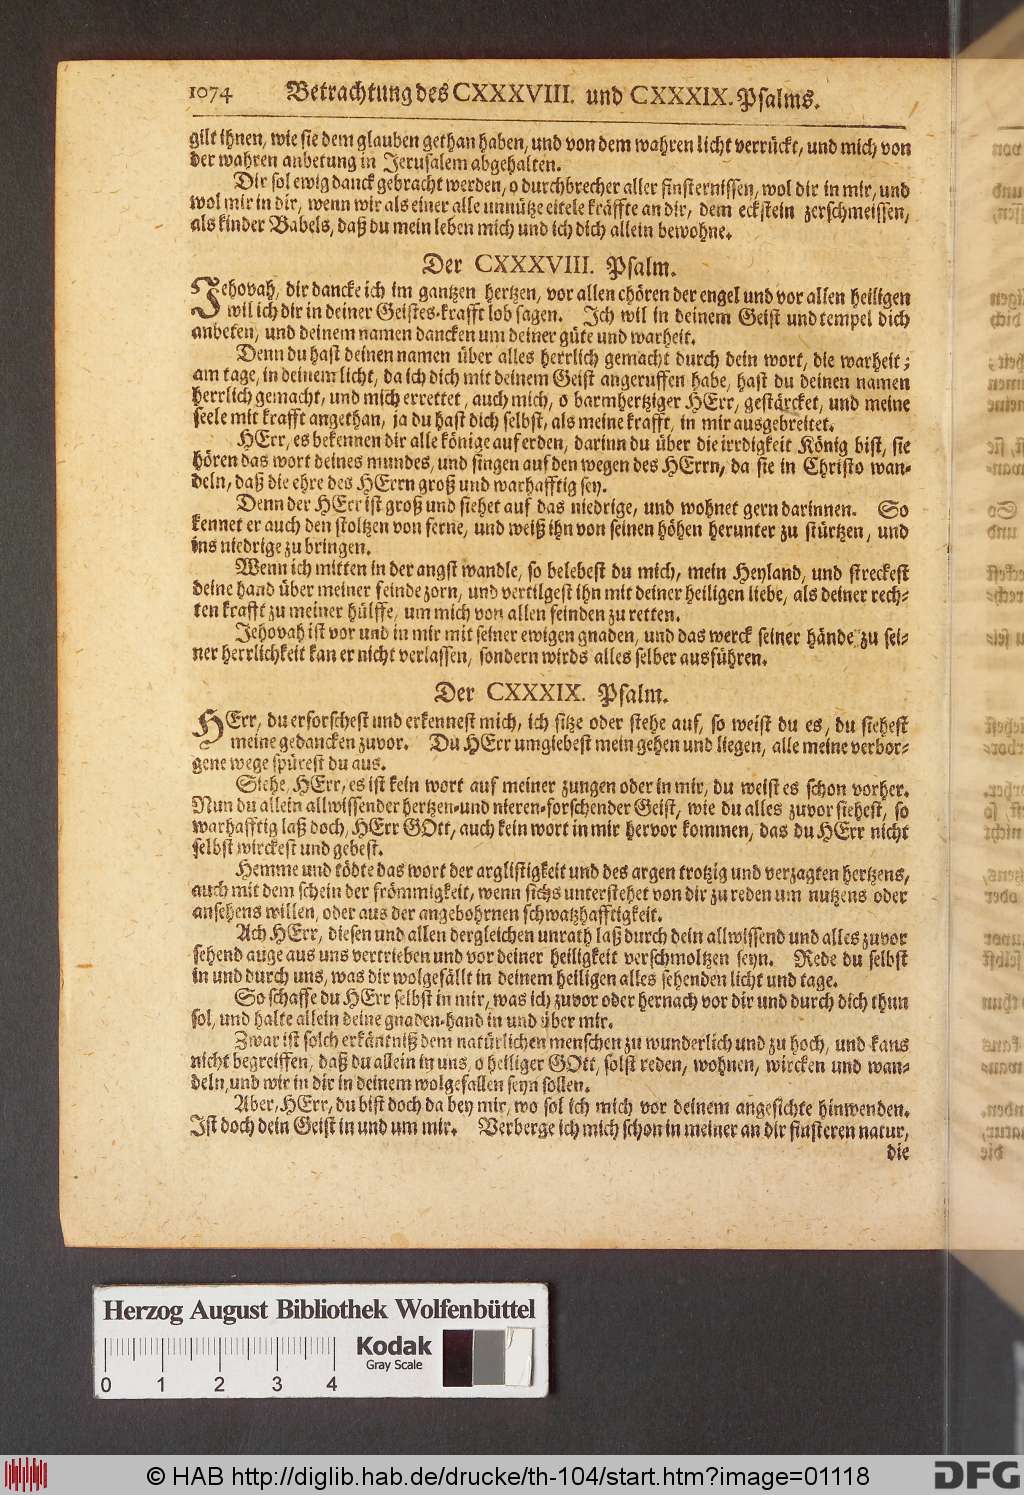 1074 Betrachtung des CXXXVIII. und CXXXIX. Psalms.
gilt ihnen, wie sie dem glauben gethan haben, und von dem wahren licht verrückt, und mich von
der wahren anbetung in Jerusalem abgehalten.
Dir sol ewig danck gebracht werden, o durchbrecher aller finsternissen, wol dir in mir, und
wol mir in dir, wenn wir als einer alle unnütze eitele kräffte an dir, dem eckstein zerschmeissen,
als kinder Babels, daß du mein leben mich und ich dich allein bewohne.
Der CXXXVIII. Psalm.
Jehovah, dir dancke ich im gantzen hertzen, vor allen chören der engel und vor allen heiligen
wil ich dir in deiner Geistes-krafft lob sagen. Ich wil in deinem Geist und tempel dich
anbeten, und deinem namen dancken um deiner güte und warheit.
Denn du hast deinen namen über alles herrlich gemacht durch dein wort, die warheit;
am tage, in deinem licht, da ich dich mit deinem Geist angeruffen habe, hast du deinen namen
herrlich gemacht, und mich errettet, auch mich, o barmhertziger HErr, gestärcket, und meine
seele mit krafft angethan, ja du hast dich selbst, als meine krafft, in mir ausgebreitet.
HErr, es bekennen dir alle könige auf erden, darinn du über die irrdigkeit König bist, sie
hören das wort deines mundes, und singen auf den wegen des HErrn, da sie in Christo wan-
deln, daß die ehre des HErrn groß und warhafftig sey.
Denn der HErr ist groß und siehet auf das niedrige, und wohnet gern darinnen. So
kennet er auch den stoltzen von ferne, und weiß ihn von seinen höhen herunter zu stürtzen, und
ins niedrige zu bringen.
Wenn ich mitten in der angst wandle, so belebest du mich, mein Heyland, und streckest
deine hand über meiner feinde zorn, und vertilgest ihn mit deiner heiligen liebe, als deiner rech-
ten krafft zu meiner hülffe, um mich von allen feinden zu retten.
Jehovah ist vor und in mir mit seiner ewigen gnaden, und das werck seiner hände zu sei-
ner herrlichkeit kan er nicht verlassen, sondern wirds alles selber ausführen.
Der CXXXIX. Psalm.
HErr, du erforschest und erkennest mich, ich sitze oder stehe auf, so weist du es, du siehest
meine gedancken zuvor. Du HErr umgiebest mein gehen und liegen, alle meine verbor-
gene wege spürest du aus.
Siehe, HErr, es ist kein wort auf meiner zungen oder in mir, du weist es schon vorher.
Nun du allein allwissender hertzen-und nieren-forschender Geist, wie du alles zuvor siehest, so
warhafftig laß doch, HErr GOtt, auch kein wort in mir hervor kommen, das du HErr nicht
selbst wirckest und gebest.
Hemme und tödte das wort der arglistigkeit und des argen trotzig und verzagten hertzens,
auch mit dem schein der frömmigkeit, wenn sichs unterstehet von dir zu reden um nutzens oder
ansehens willen, oder aus der angebohrnen schwatzhafftigkeit.
Ach HErr, diesen und allen dergleichen unrath laß durch dein allwissend und alles zuvor
sehend auge aus uns vertrieben und vor deiner heiligkeit verschmoltzen seyn. Rede du selbst
in und durch uns, was dir wolgefällt in deinem heiligen alles sehenden licht und tage.
So schaffe du HErr selbst in mir, was ich zuvor oder hernach vor dir und durch dich thun
sol, und halte allein deine gnaden-hand in und über mir.
Zwar ist solch erkäntniß dem natürlichen menschen zu wunderlich und zu hoch, und kans
nicht begreiffen, daß du allein in uns, o heiliger GOtt, solst reden, wohnen, wircken und wan-
deln, und wir in dir in deinem wolgefallen seyn sollen.
Aber, HErr, du bist doch da bey mir, wo sol ich mich vor deinem angesichte hinwenden.
Ist doch dein Geist in und um mir. Verberge ich mich schon in meiner an dir finsteren natur,
die
Herzog August Bibliothek Wolfenbüttel
Kodak
Gray Scale
0 1 2 3 4
© HAB http://diglib.hab.de/drucke/th-104/start.htm?image=01118
DFG